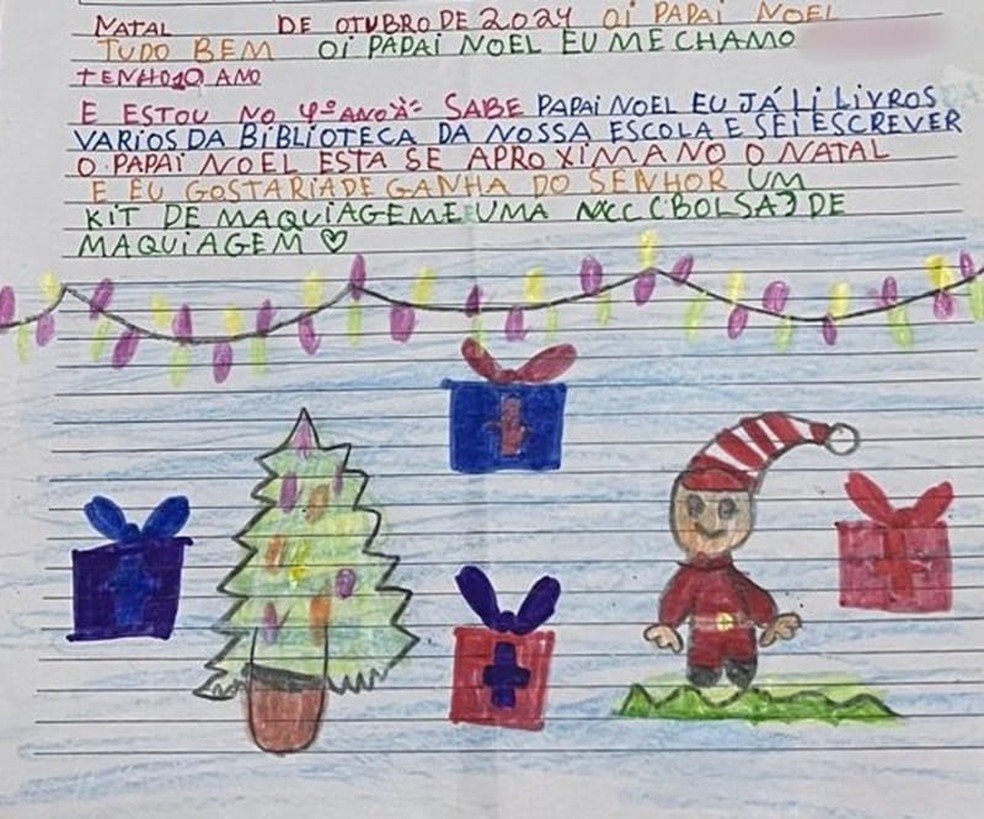 NATAL DE OTUBRO DE 2024 OI PAPAI NOEL
TUDO BEM OI PAPAI NOEL EU ME CHAMO
TENHO 10 ANO
E ESTOU NO 4º ANO À= SABE PAPAI NOEL EU JÁ LI LIVROS
VARIOS DA BIBLIOTECA DA NOSSA ESCOLA E SEI ESCREVER
O PAPAI NOEL ESTA SE APROXIMANO O NATAL
E EU GOSTARIA DE GANHA DO SENHOR UM
KIT DE MAQUIAGEM E UMA (BOLSA) DE
MAQUIAGEM ♡